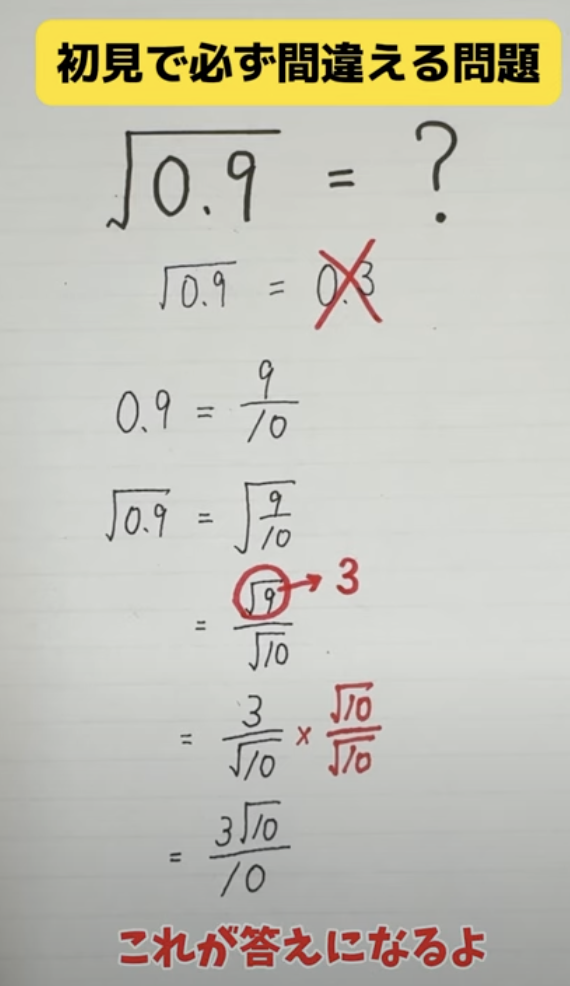 初見で必ず間違える問題
√0.9 = ?
√0.9 = 0.3
0.9 = 9/10
√0.9 = √(9/10)
= √9/√10 → 3
= 3/√10 × √10/√10
= 3√10/10
これが答えになるよ